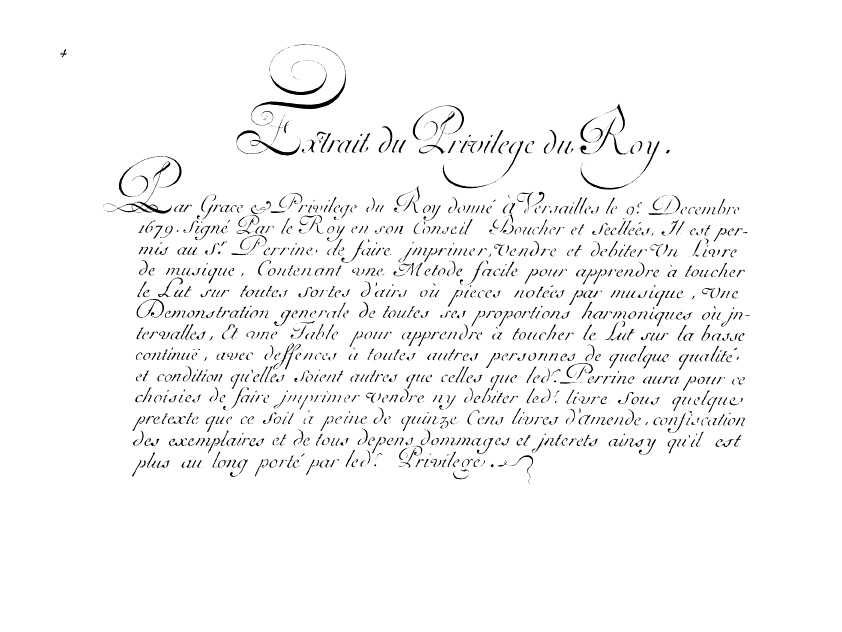 4
Extrait du Privilege du Roy.
Par Grace & Privilege du Roy donné à Versailles le 9e. Decembre
1679. Signé Par le Roy en son Conseil Boucher et Scellées, Il est per-
mis au Sr. Perrine de faire jmprimer, Vendre et debiter Vn Livre
de musique, Contenant vne Metode facile pour apprendre à toucher
le Lut sur toutes sortes d'airs où pieces notées par musique, Vne
Demonstration generale de toutes ses proportions harmoniques où jn-
tervalles, Et vne Table pour apprendre à toucher le Lut sur la basse
continuë, avec deffences à toutes autres personnes de quelque qualité
et condition qu'elles soient autres que celles que ledt. Perrine aura pour ce
choisies de faire jmprimer vendre n'y debiter ledt. livre sous quelque
pretexte que ce soit à peine de quinze Cens livres d'amende, confiscation
des exemplaires et de tous depens, dommages et jnterets ainsy qu'il est
plus au long porté par ledt. Privilege.